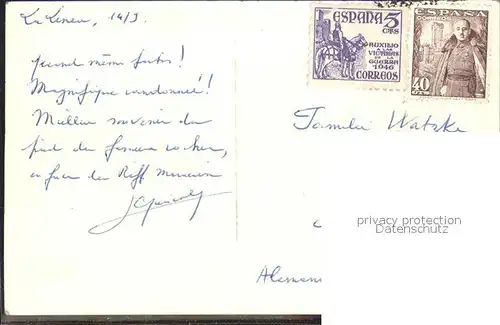 La Linea, 14/3.
Magnifique randonnée!
Meilleur souvenir du
pied du fameux rocher,
en face du Riff marocain
ESPAÑA 5
CTS
AUXILIO
A LAS
VICTIMAS
DE LA
GUERRA
1946
CORREOS
ESPAÑA
40
CTS
Familie Watzke
privacy protection
Datenschutz
Aleman